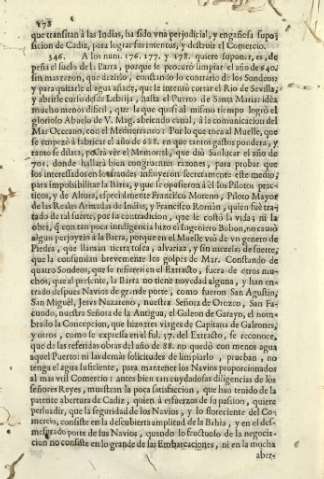 178
que transitan à las Indias, ha sido vna perjudicial, y engañosa supo-
sicion de Cadiz, para lograr sus intentos, y destruir el Comercio.
346. A los num. 176. 177. y 178. quiere suponer, es, de
peña el suelo de la Barra, porque se procurò limpiar el año de 640.
sin mas razon, que dezirlo, constando lo contrario de los Sondeos;
y para quitarle el agua añade, que se intentò cortar el Rio de Sevilla,
y abrirle curso desde Lebrija, hasta el Puerto de Santa Maria: idèa
mucho menos dificil, que la que quasi al mismo tiempo logrò el
glorioso Abuelo de V. Mag. abriendo canal, à la comunicacion del
Mar Occeano, con el Mediterraneo: Por lo que toca al Muelle, que
se empezò à fabricar el año de 688. en que tantos gastos pondera, y
tanto se dilata, podrà vèr el Memorial, que diò Sanlucar el año de
701. donde hallarà bien congruentes razones, para probar que
los interessados en los fraudes influyeron secretamente este medio,
para impossibilitar la Barra, y que se opusieron à èl los Pilotos prac-
ticos, y de Altura, especialmente Francisco Moreno, Piloto Mayor
de las Reales Armadas de Indias, y Francisco Roman, quien fuè tra-
tado de tal suerte, por su contradicion, que le costò la vida; ni la
obra, que con tan poca inteligencia hizo el Ingeniero Bobon, no causò
algun perjuyzio à la Barra, porque en el Muelle vsò de vn genero de
Piedra, que llaman tierra tosca, alvariza, y sin mezcla, de suerte,
que la consumian brevemente los golpes de Mar. Constando de
quatro Sondeos, que se refieren en el Extracto, fuera de otros mu-
chos, que al presente, la Barra no tiene novedad alguna, y han en-
trado despues Navios de grande porte, como fueron San Agustin,
San Miguèl, Jesvs Nazareno, nuestra Señora de Orozco, San Fa-
cundo, nuestra Señora de la Antigua, el Galeon de Garayo, el nom-
brado la Concepcion, que hizo tres viages de Capitana de Galeones,
y otros, como se expressa en el fol. 57. del Extracto, se reconoce,
que de las referidas obras del año de 88. no quedò con menos agua
aquel Puerto: ni las demàs solicitudes de limpiarlo, prueban, no
tenga el agua suficiente, para mantener los Navios proporcionados
al mas vtil Comercio: antes bien tan cuydadosas diligencias de los
señores Reyes, muestran la poca satisfaccion, que han tenido de la
patente abertura de Cadiz, quien à esfuerzos de su passion, quiere
persuadir, que la seguridad de los Navios, y lo floreciente del Co-
mercio, consiste en la descubierta amplitud de la Bahìa, y en el des-
mesurado porte de sus Navios, quando lo fructuoso de la negocia-
cion no consiste en lo grande de las Embarcaciones, ni en la mucha
aber-